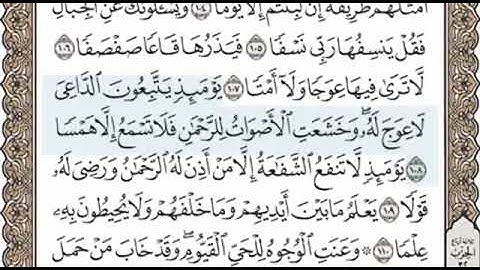 أَمۡثَلُهُمۡ طَرِيقَةً إِن لَّبِثۡتُمۡ إِلَّا يَوۡمٗا ١٠٤ وَيَسۡـَٔلُونَكَ عَنِ ٱلۡجِبَالِ
فَقُلۡ يَنسِفُهَا رَبِّي نَسۡفٗا ١٠٥ فَيَذَرُهَا قَاعٗا صَفۡصَفٗا ١٠٦
لَّا تَرَىٰ فِيهَا عِوَجٗا وَلَآ أَمۡتٗا ١٠٧ يَوۡمَئِذٖ يَتَّبِعُونَ ٱلدَّاعِيَ
لَا عِوَجَ لَهُۥۖ وَخَشَعَتِ ٱلۡأَصۡوَاتُ لِلرَّحۡمَٰنِ فَلَا تَسۡمَعُ إِلَّا هَمۡسٗا
١٠٨ يَوۡمَئِذٖ لَّا تَنفَعُ ٱلشَّفَٰعَةُ إِلَّا مَنۡ أَذِنَ لَهُ ٱلرَّحۡمَٰنُ وَرَضِيَ لَهُۥ
قَوۡلٗا ١٠٩ يَعۡلَمُ مَا بَيۡنَ أَيۡدِيهِمۡ وَمَا خَلۡفَهُمۡ وَلَا يُحِيطُونَ بِهِۦ
عِلۡمٗا ١١٠ ۞ وَعَنَتِ ٱلۡوُجُوهُ لِلۡحَيِّ ٱلۡقَيُّومِۖ وَقَدۡ خَابَ مَنۡ حَمَلَ